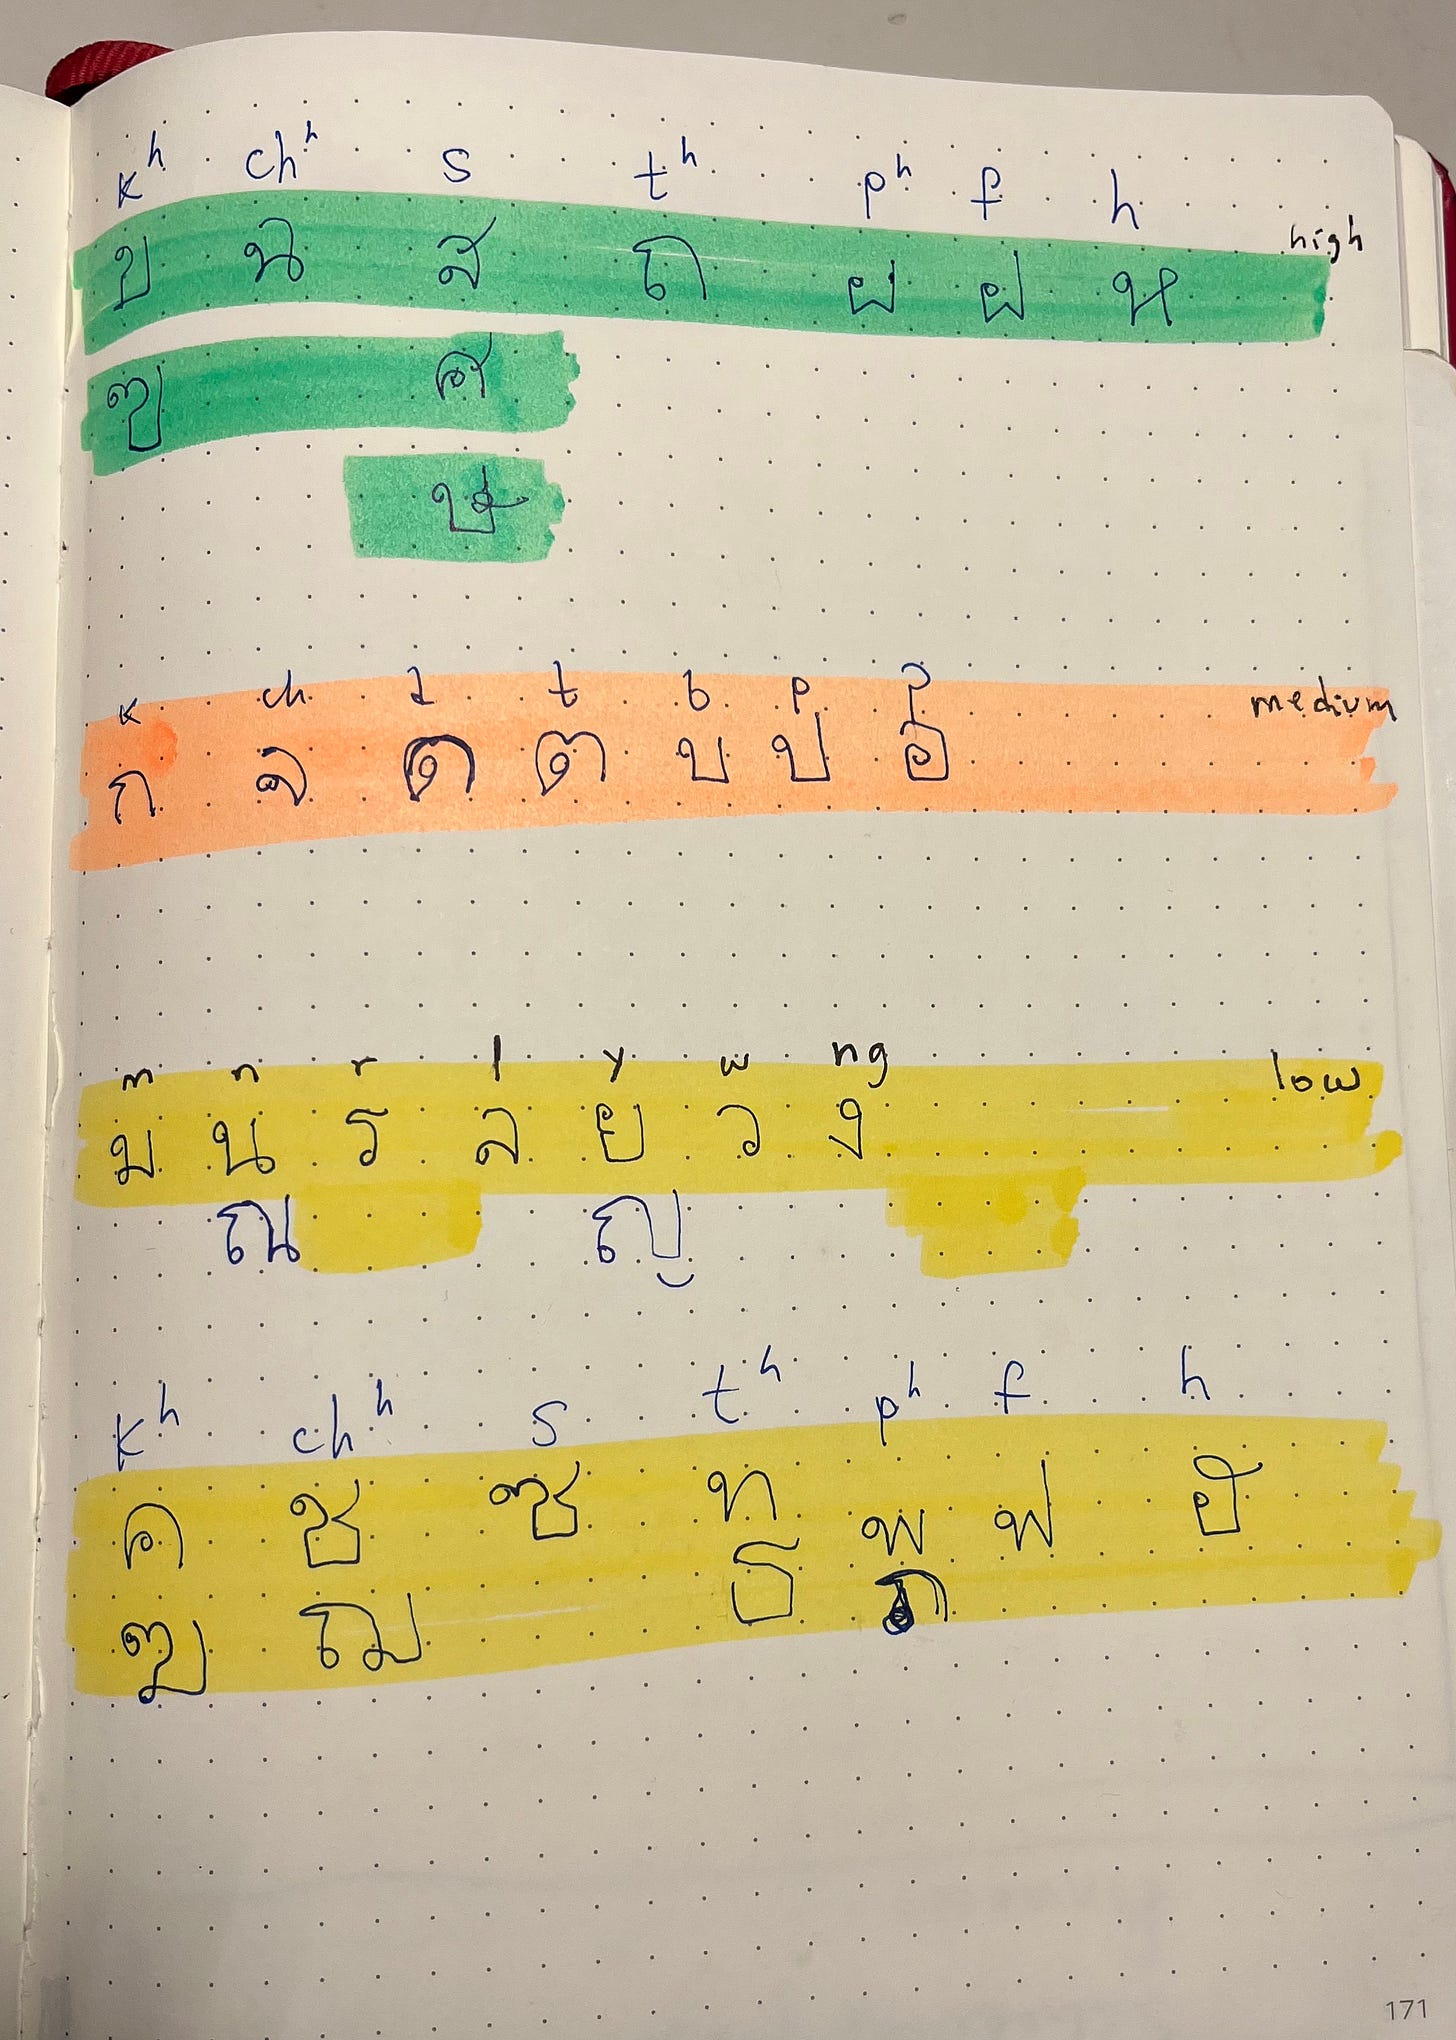 kʰ chʰ s tʰ pʰ f h
ข ฉ ส ถ ผ ฝ ห high
ฃ ศ
ษ
k ch d t b p ʔ medium
ก จ ด ต บ ป อ
m n r l y w ng low
ม น ร ล ย ว ง
ณ ญ
kʰ chʰ s tʰ pʰ f h
ค ช ซ ท พ ฟ ฮ
ฆ ฌ ธ ภ
171